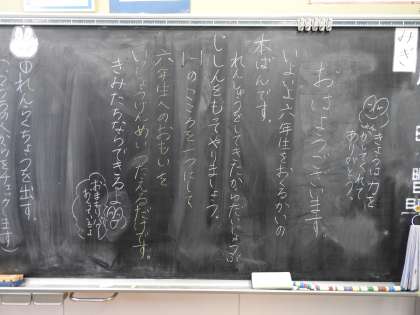 めざ
きょうは力を
かしてくれて
ありがとう。
おはようございます。
いよいよ六年生をおくるかいの
本ばんです。
れんしゅうをしてきたからだいじょうぶ
じしんをもってやりましょう。
1-1のこころを一つにして
六年生へのおもいを
いっしょうけんめいつたえるだけです。
きみたちならできるよ
おまもりが
ついているよ
①れんらくちょうを出す。